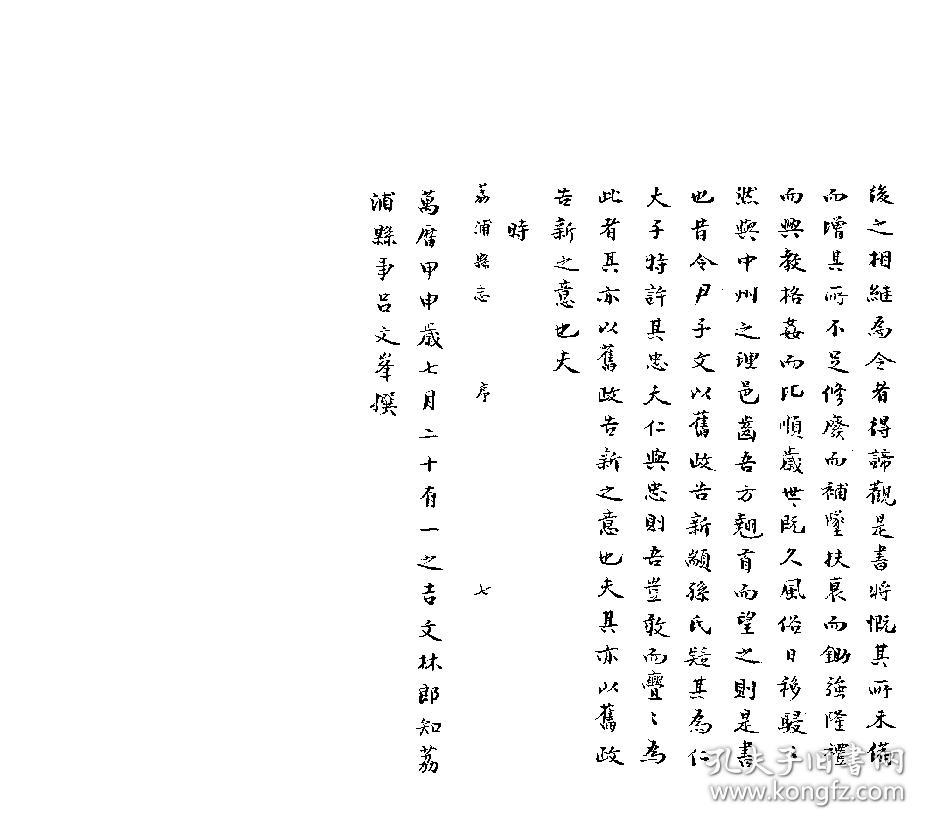 後之相繼為令者得諦觀是書將慨其所未備
而增其所不足修廢而補墜扶衰而鋤強隆禮
而興教格姦而比順歲世既久風俗日移駸〻
然與中州之理邑齒吾方翹首而望之則是書
也昔令尹子文以舊政告新顓孫氏疑其為仁
夫子特許其忠夫仁與忠則吾豈敢而亹〻為
此者其亦以舊政告新之意也夫其亦以舊政
告新之意也夫
時
荔浦縣志 序 七
萬曆甲申歲七月二十有一之吉文林郎知荔
浦縣事呂文峯撰
孔夫子旧书网
www.kongfz.com